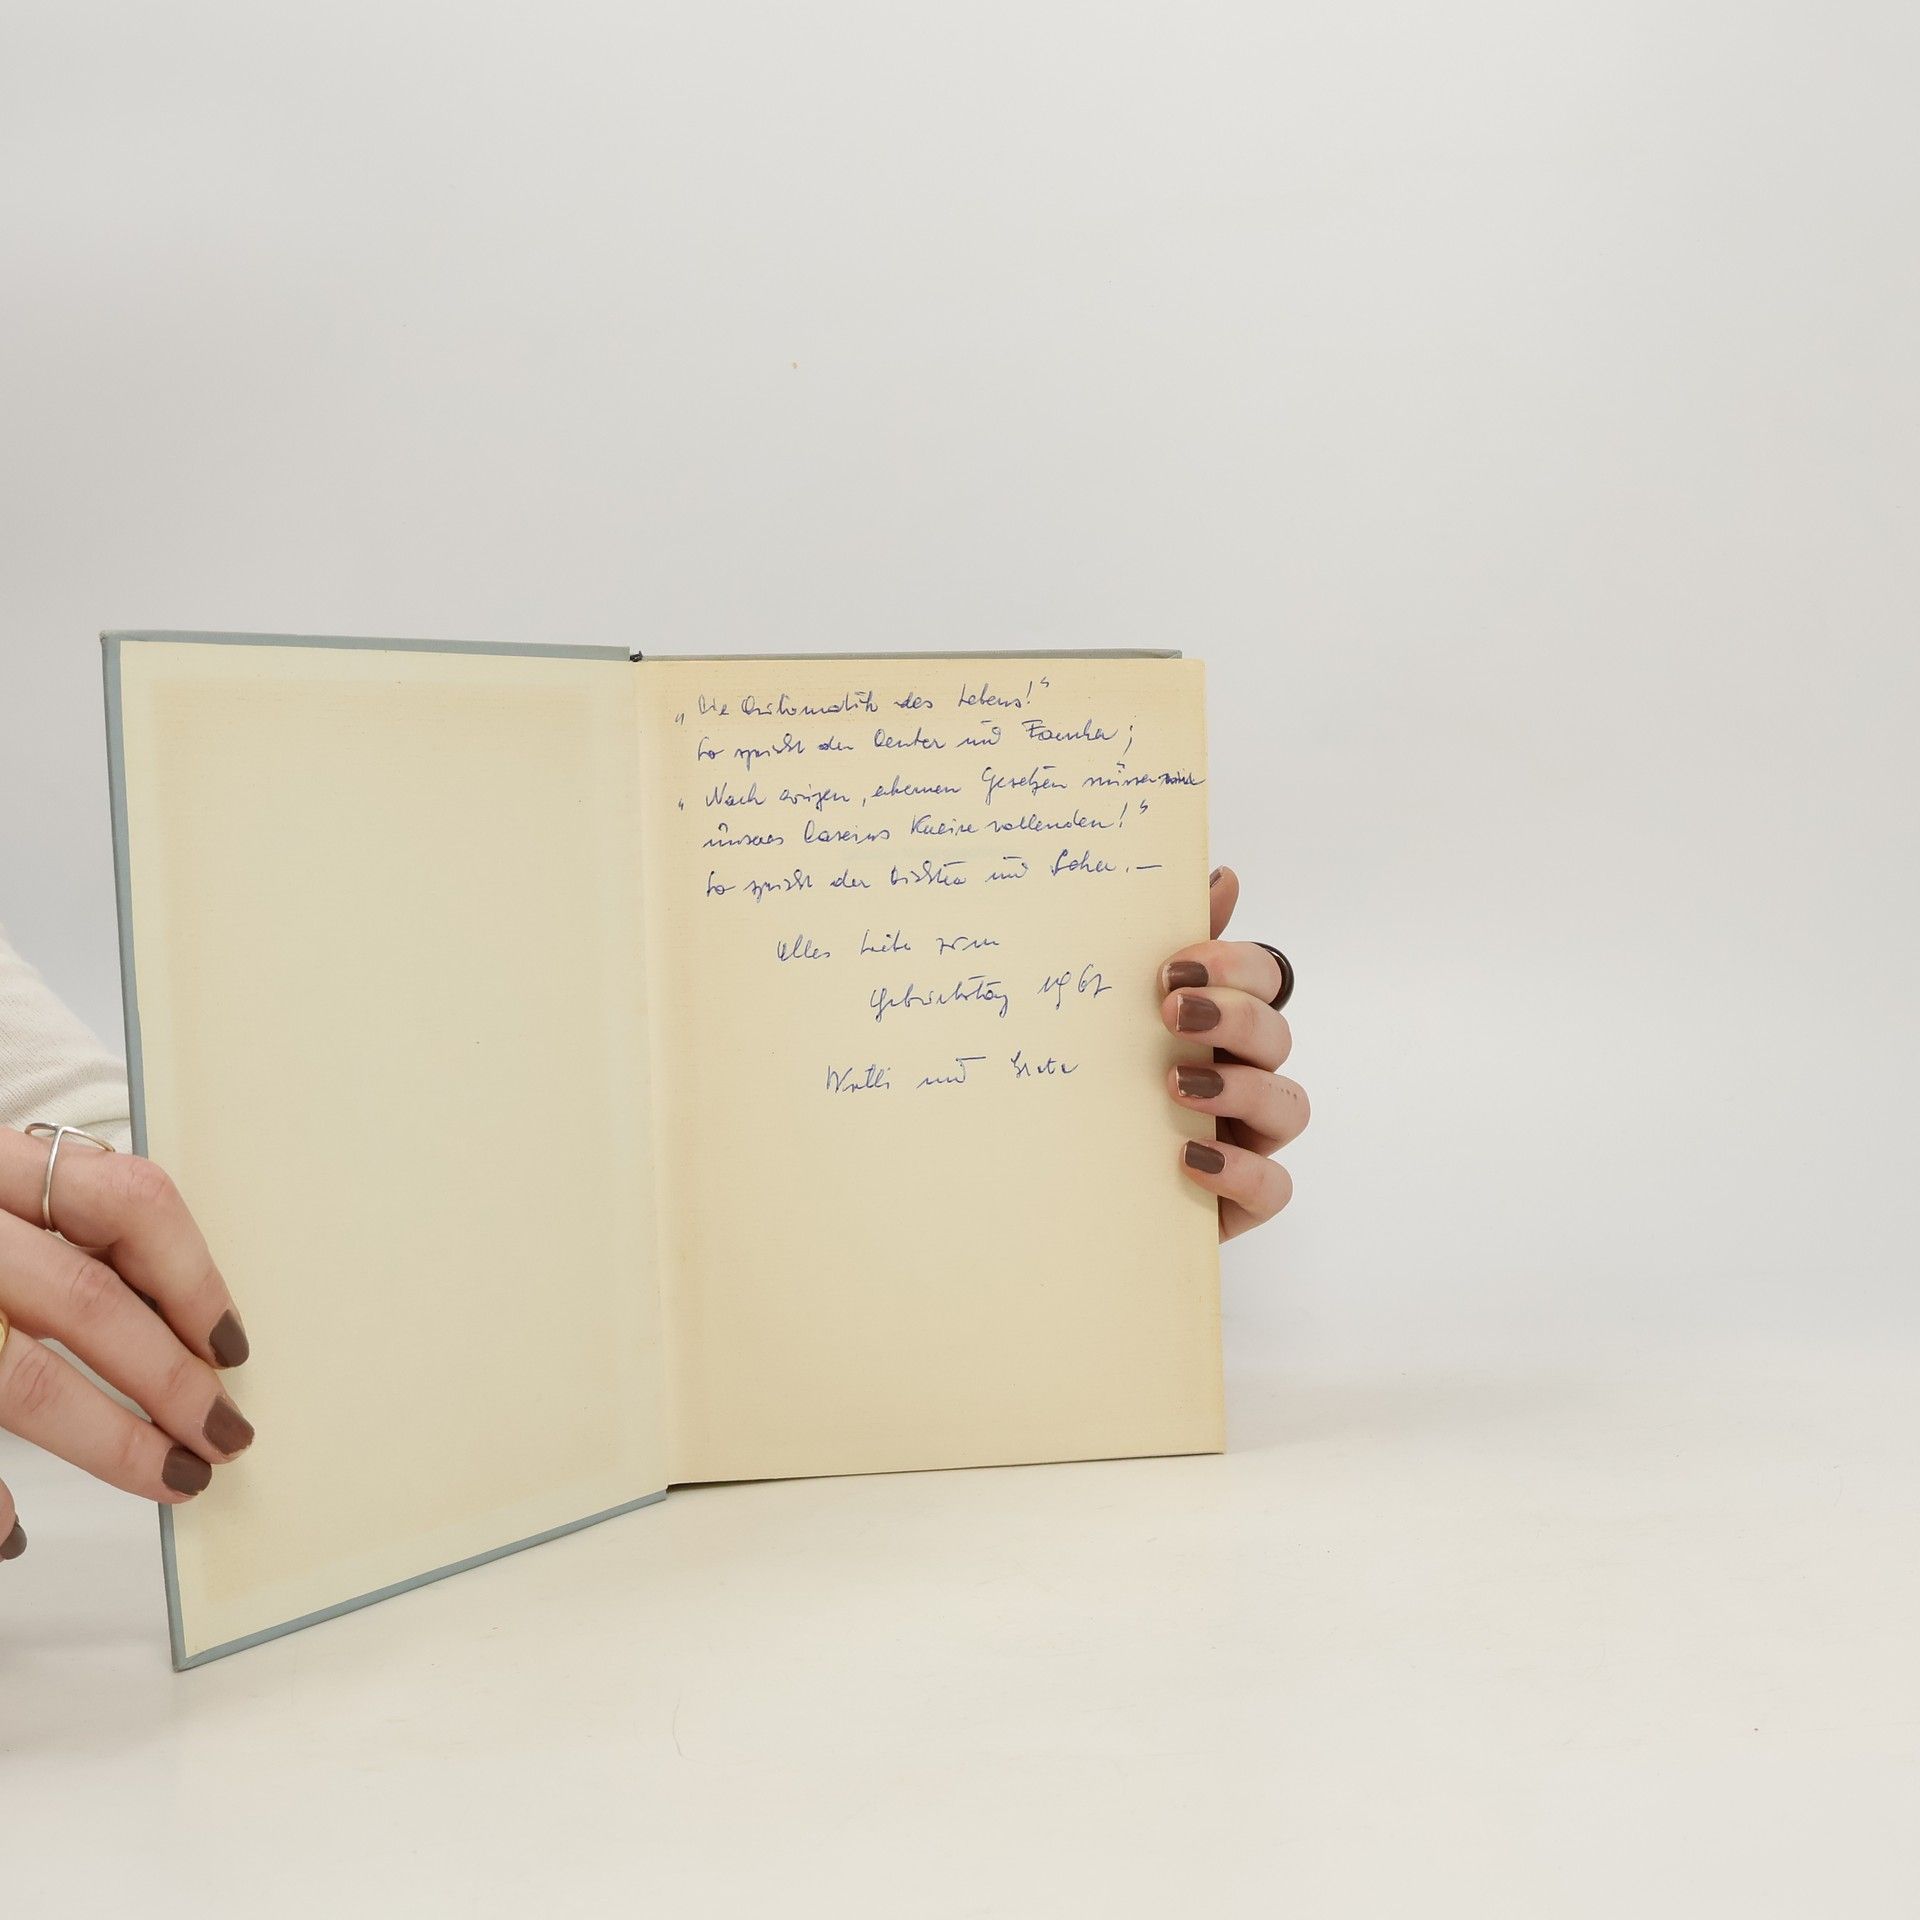 „Die Automatik des Lebens!“
So spricht der Denker und Forscher;
„Nach ewigen, ehernen Gesetzen müssen wir
unseres Daseins Kreise vollenden!“
So spricht der Dichter und Seher. —
Alles Liebe zum
Geburtstag 1967
Walli und Grete